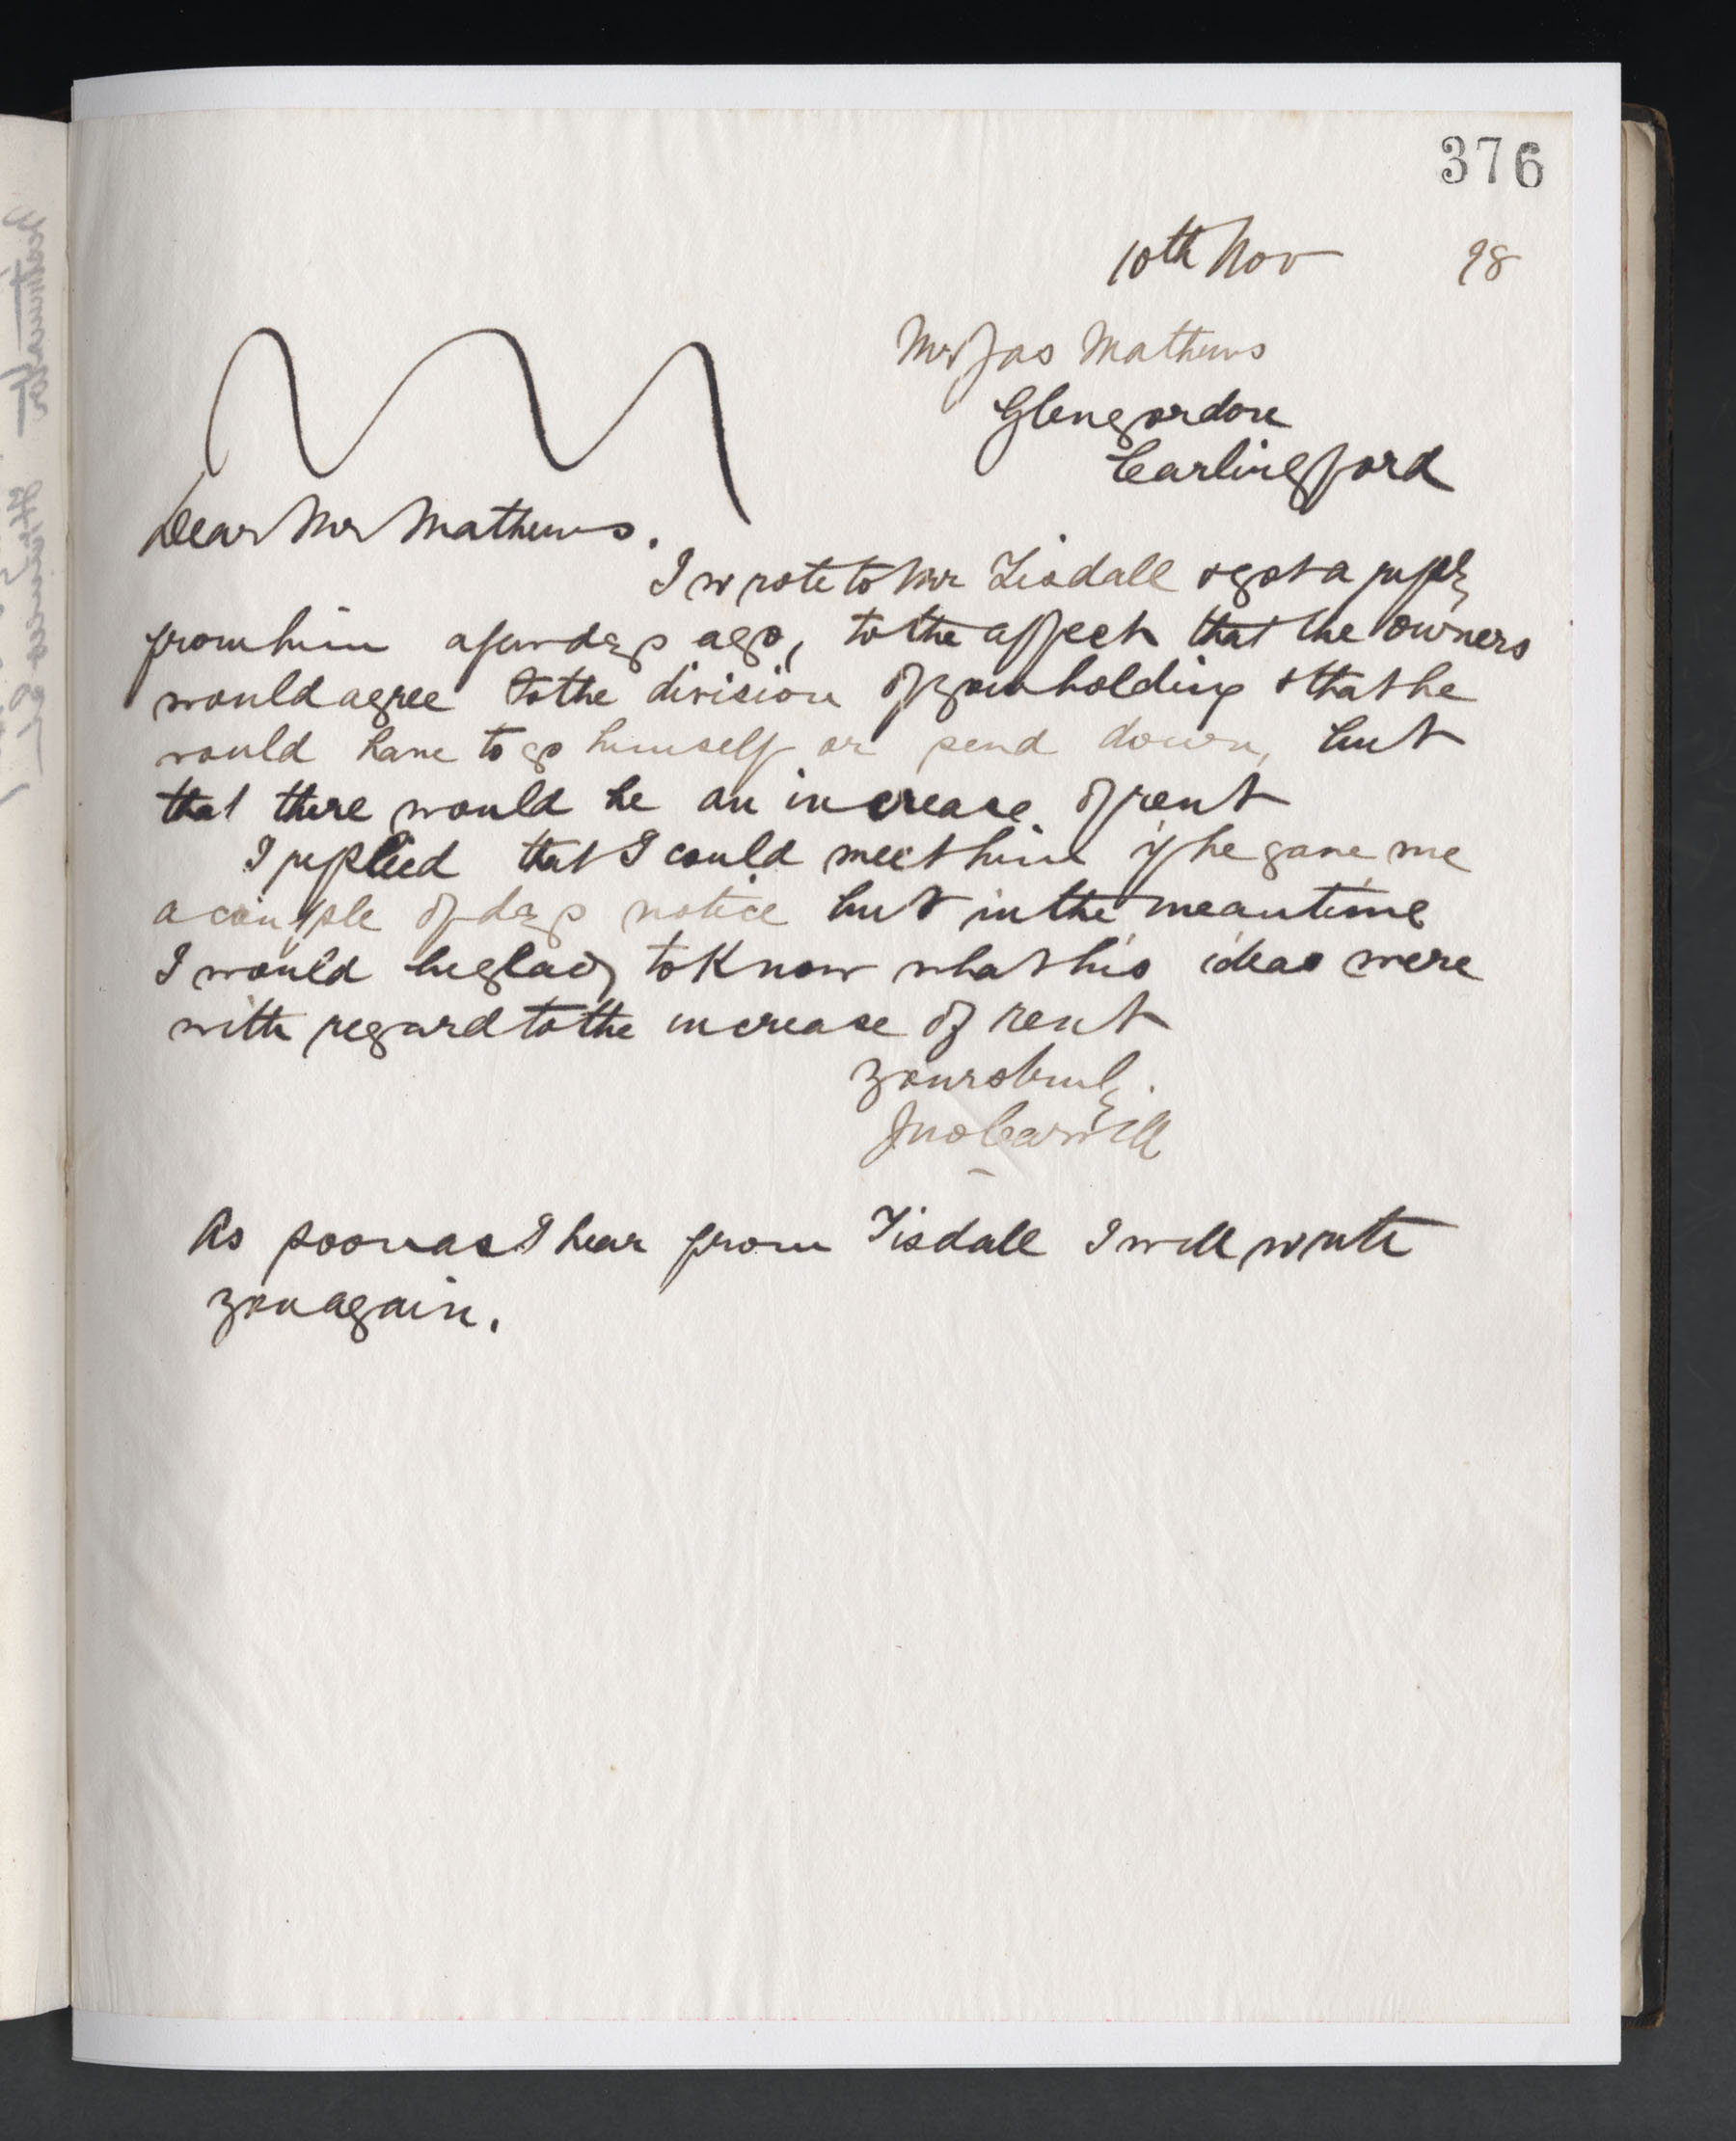 376
10th Nov 98
Mr Jas Mathews
Glengordore
Carlingford
Dear Mr Mathews.
I wrote to Mr Tisdall & got a reply
from him a few days ago, to the affect that the owners
would agree to the division of your holding & that he
would have to go himself or send down, but
that there would be an increase of rent
I replied that I could meet him if he gave me
a couple of days notice but in the meantime
I would be glad to know what his ideas were
with regard to the increase of rent
Yours truly.
Jno Carvill
As soon as I hear from Tisdall I will write
you again.